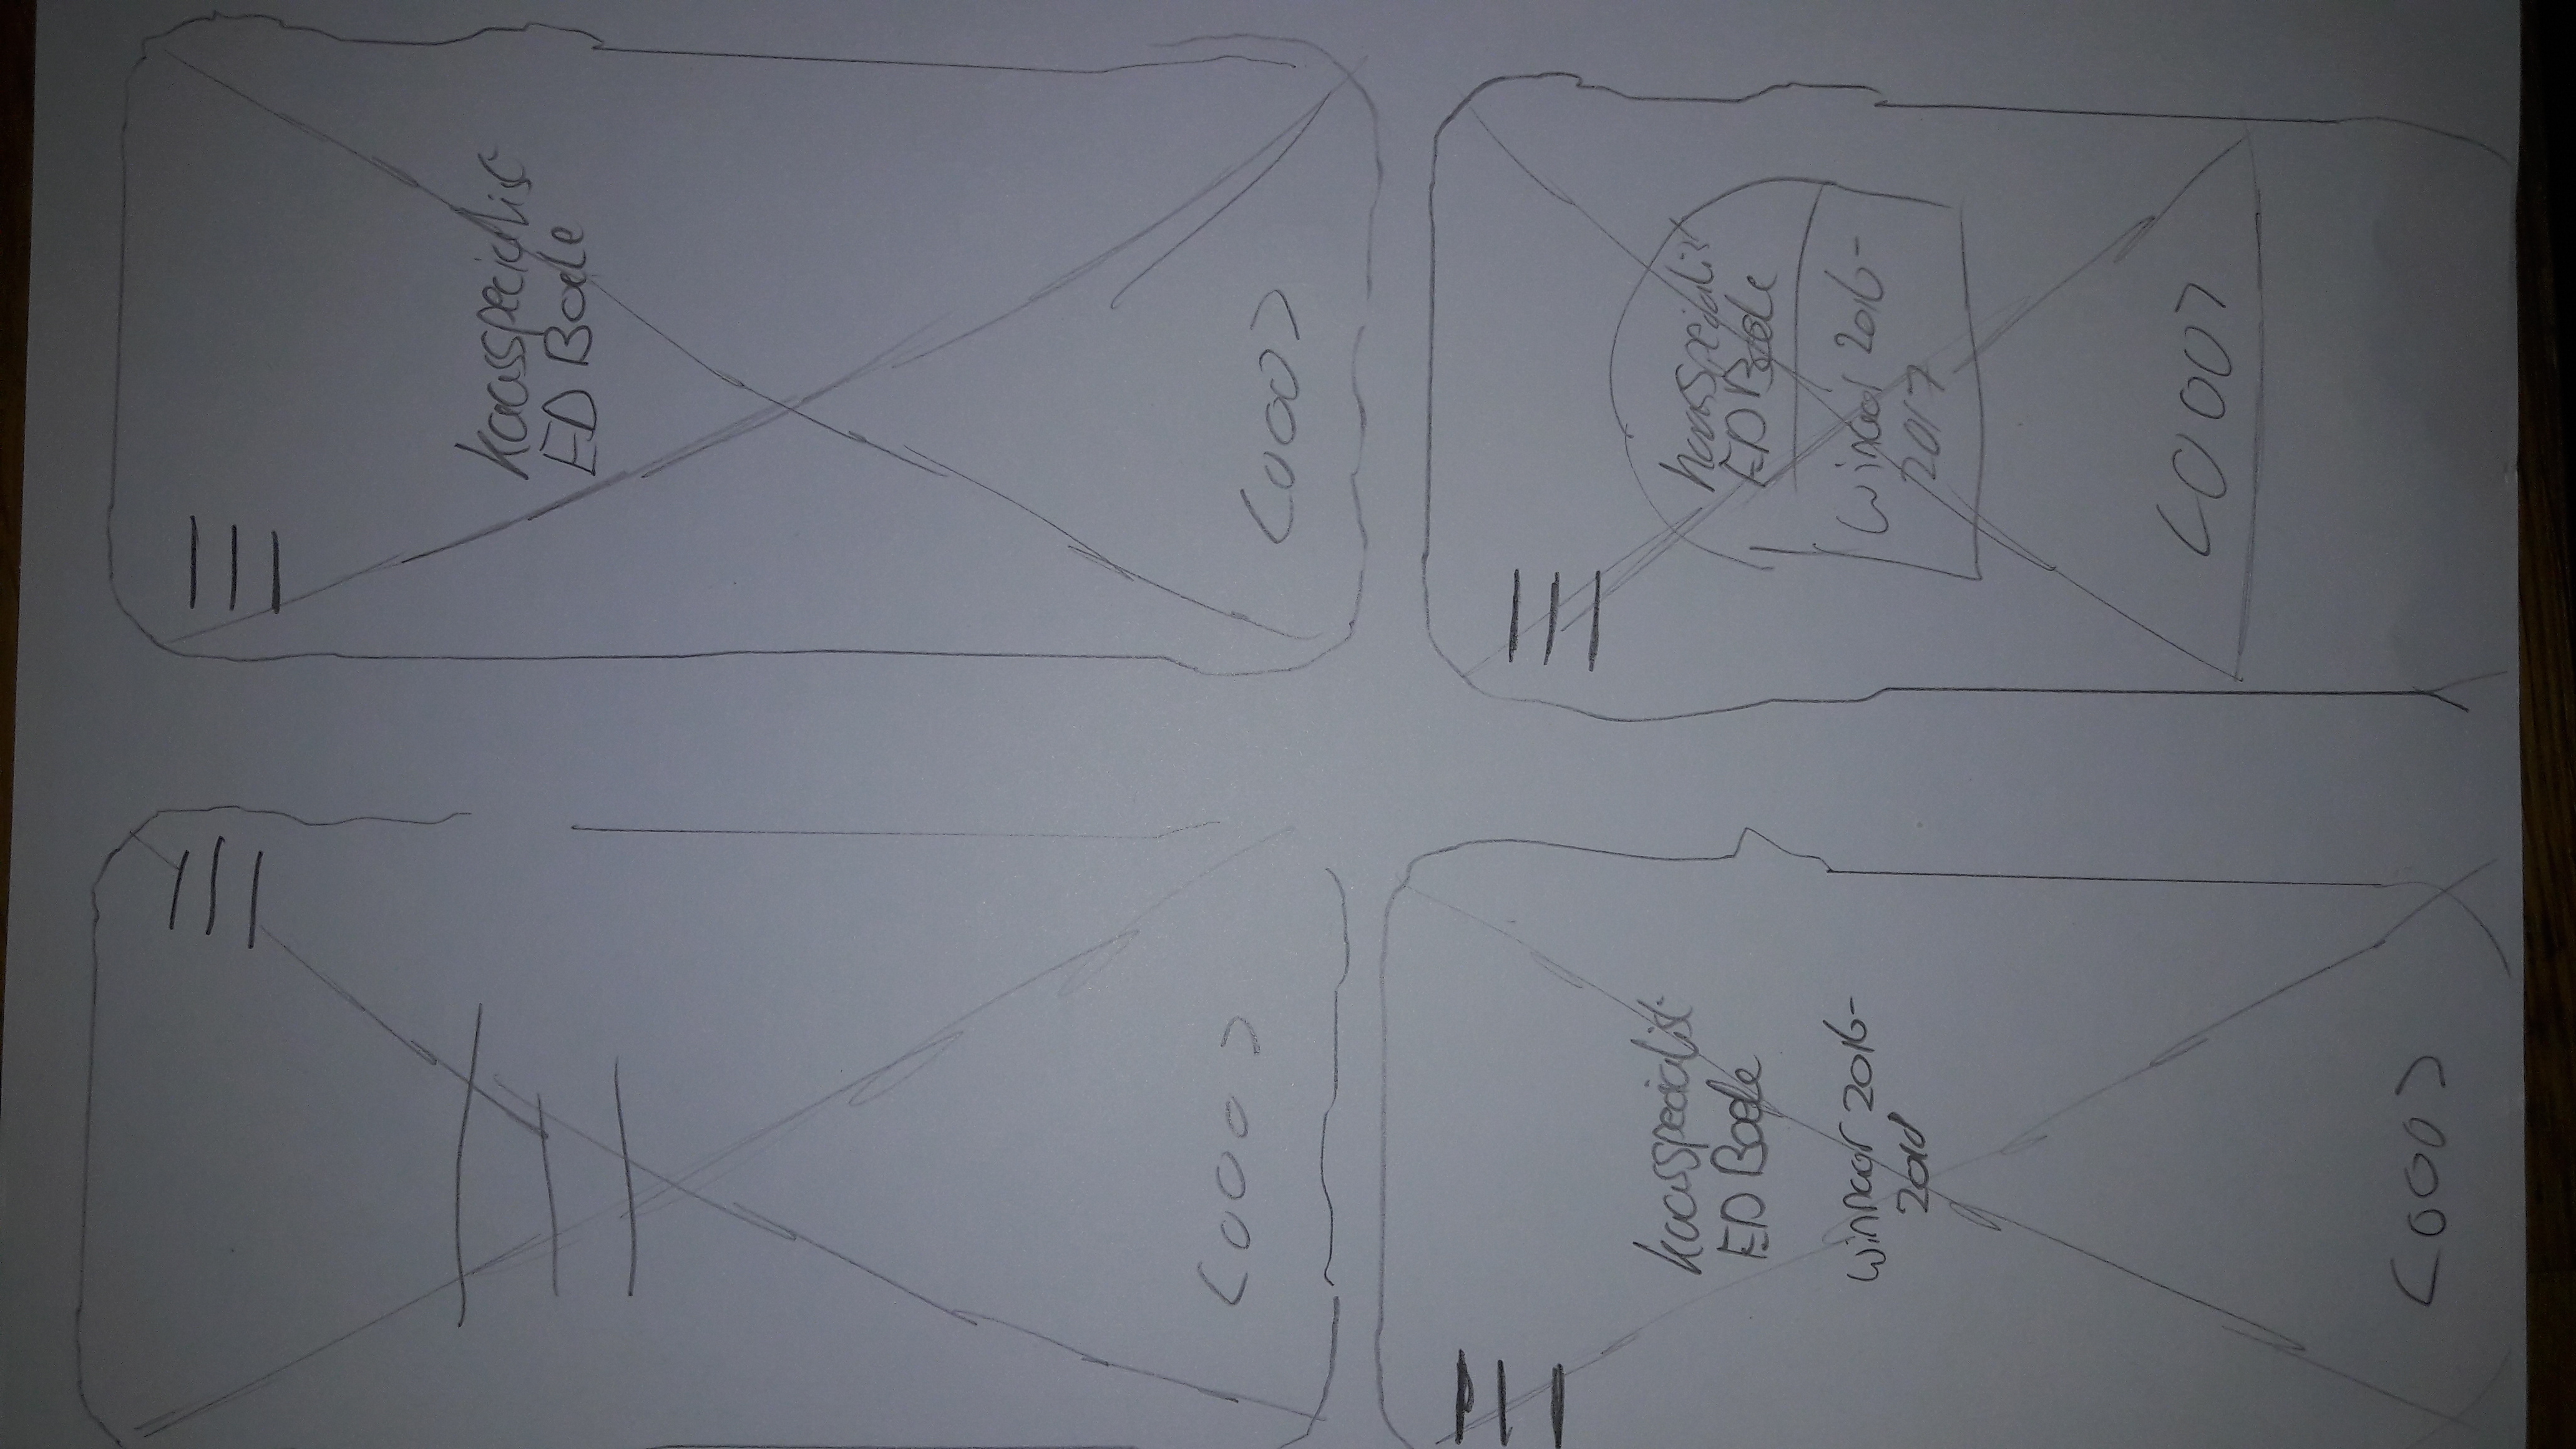 <000>
kaasspecialist
ED Boele
<000>
kaasspecialist
ED Boele
winnaar 2016-
2018
<000>
kaasspecialist
ED Boele
winaar 2016-
2017
<000>